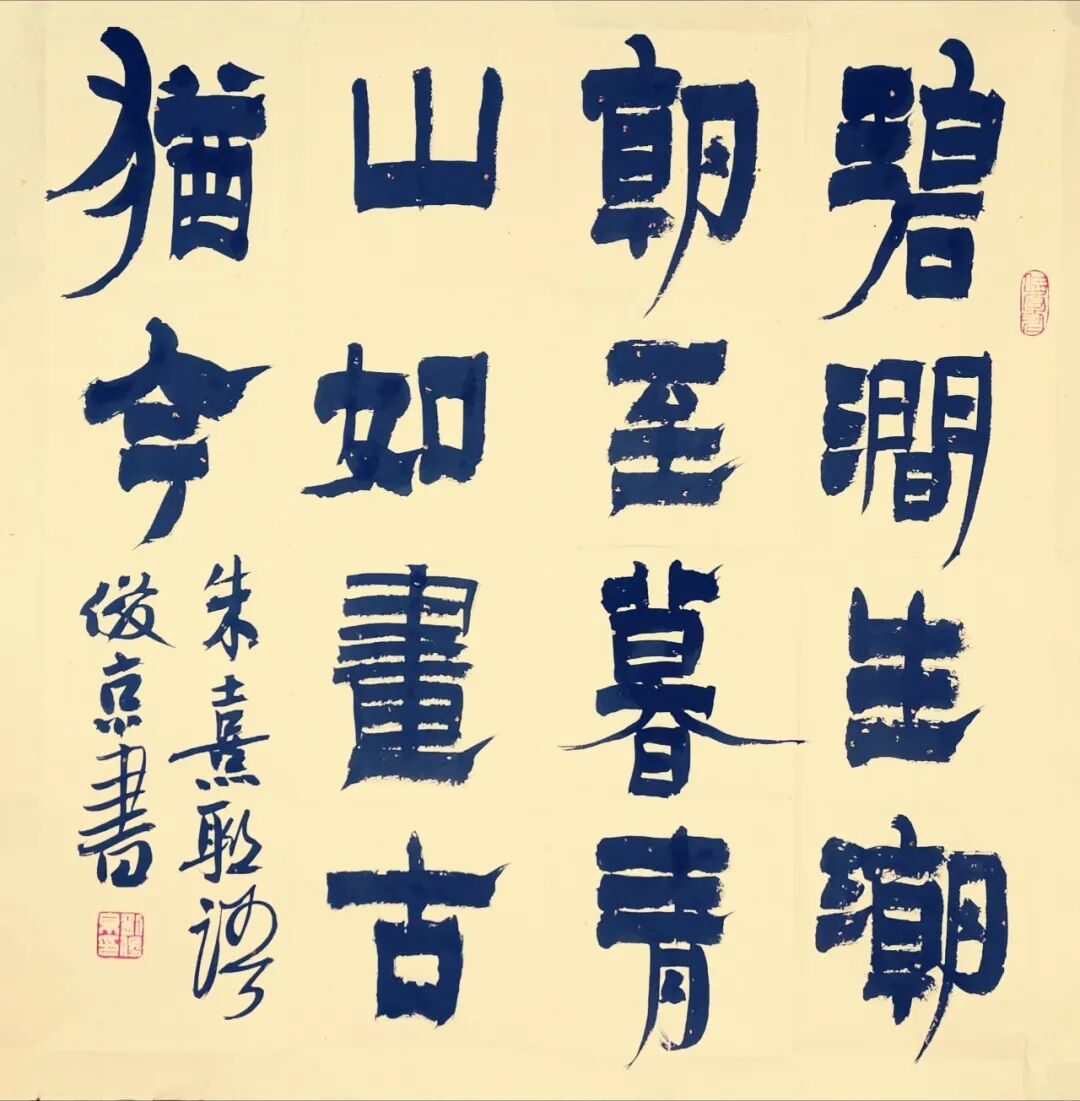 碧澗生潮
朝至暮青
山如畫古
猶今
朱熹聯語
俊京書